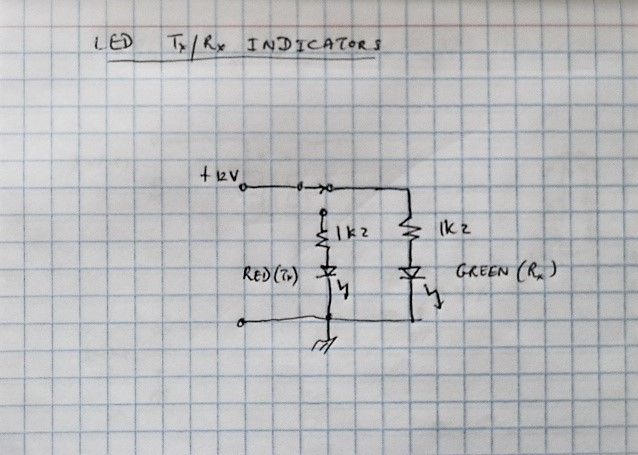 LED Tx/Rx INDICATORS
+12V
1K2 1K2
RED (Tx) GREEN (Rx)